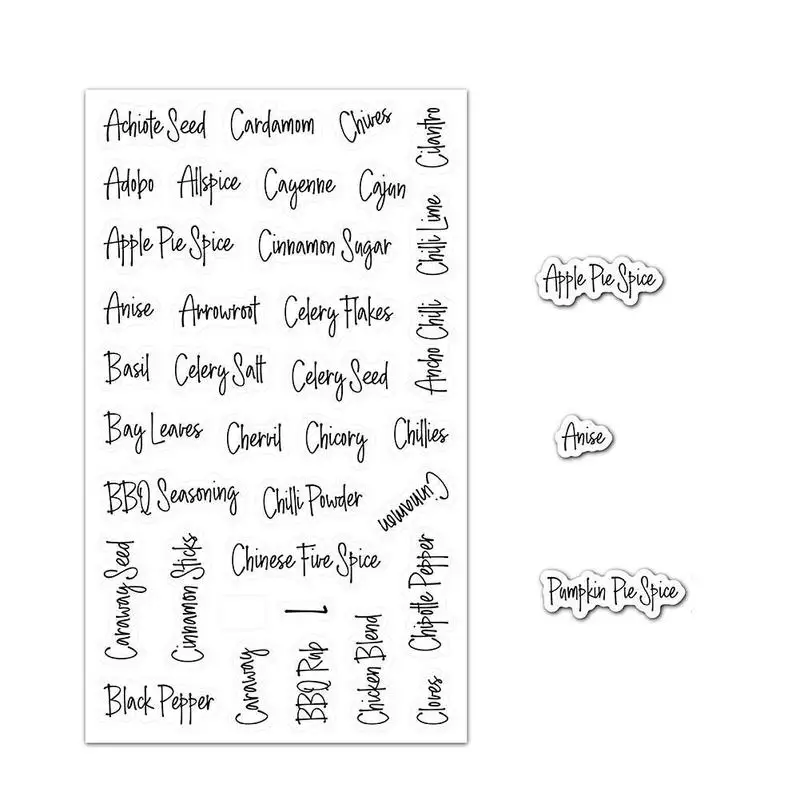 Achiote Seed Cardamom Chives
Cilantro
Adobo Allspice Cayenne Cajun
Chilli Lime
Apple Pie Spice Cinnamon Sugar
Anise Arrowroot Celery Flakes
Ancho Chilli
Basil Celery Salt Celery Seed
Bay Leaves Chervil Chicory Chillies
BBQ Seasoning Chilli Powder
Cinnamon
Caraway Seed
Cinnamon Sticks
Chinese Five Spice
Chipotle Pepper
Black Pepper
Caraway
BBQ Rub
Chicken Blend
Cloves
Apple Pie Spice
Anise
Pumpkin Pie Spice